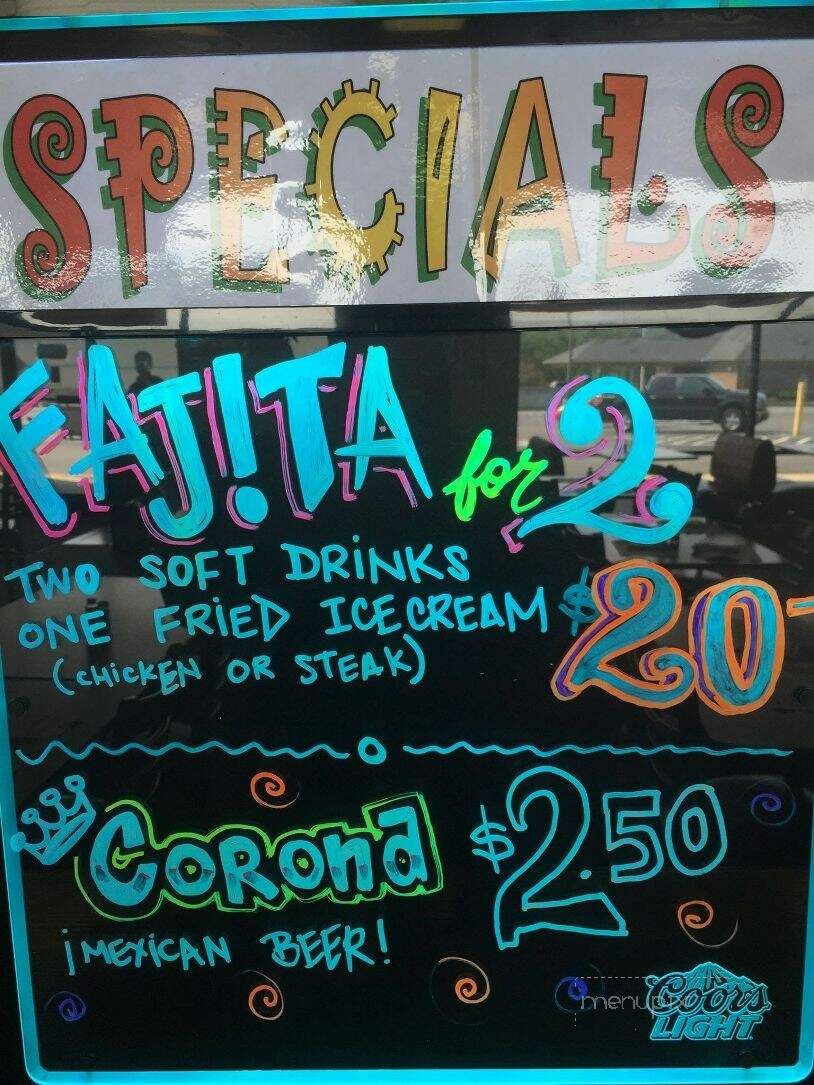 SPECIALS
FAJITA for 2
TWO SOFT DRINKS
ONE FRIED ICE CREAM $20
(CHICKEN OR STEAK)
Corona $2.50
¡MEXICAN BEER!
Coors
LIGHT